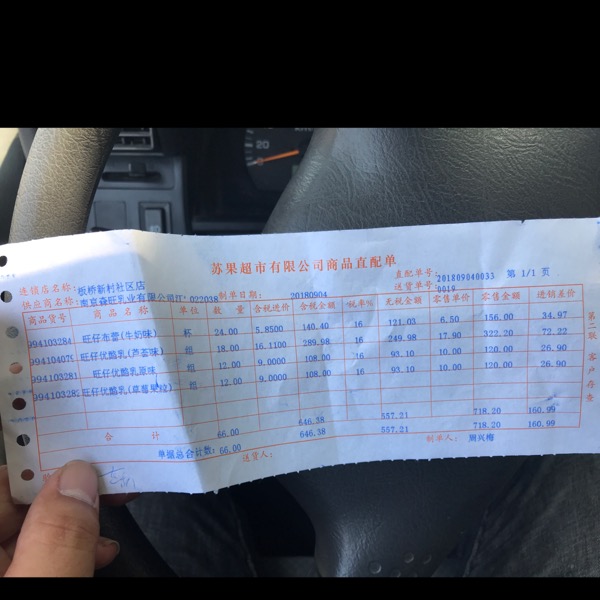 苏果超市有限公司商品直配单
连锁店名称: 板桥新村社区店 直配单号: 201809040033 第 1/1 页
供应商名称: 南京森旺乳业有限公司江 022038 制单日期: 20180904 送货单号: 0019
商品货号 商品名称 单位 数量 含税进价 含税金额 税率% 无税金额 零售单价 零售金额 进销差价
994103284 旺仔布蕾(牛奶味) 杯 24.00 5.8500 140.40 16 121.03 6.50 156.00 34.97
994104079 旺仔优酪乳(芦荟味) 组 18.00 16.1100 289.98 16 249.98 17.90 322.20 72.22
994103281 旺仔优酪乳原味 组 12.00 9.0000 108.00 16 93.10 10.00 120.00 26.90
994103282 旺仔优酪乳(草莓果粒) 组 12.00 9.0000 108.00 16 93.10 10.00 120.00 26.90
合计 66.00 646.38 557.21 718.20 160.99
单据总合计数: 66.00 646.38 557.21 718.20 160.99
送货人: 制单人: 周兴梅
第二联 客户存查